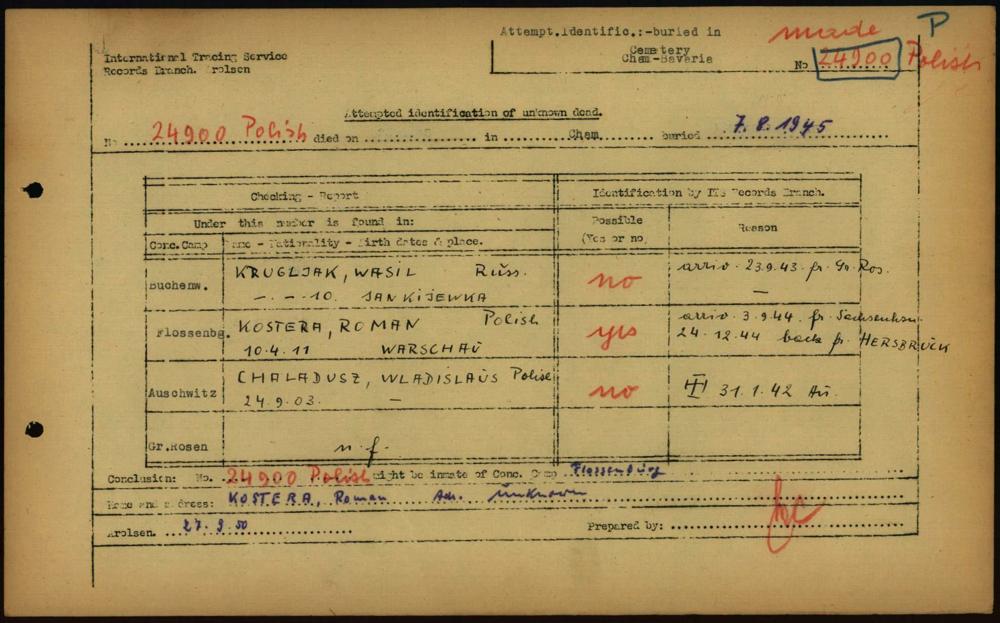 Attempt.Identific.:-buried in
made P
Cemetery
Cham-Bavaria
No 24900 Polish
International Tracing Service
Records Branch. Arolsen
Attempted identification of unknown dead.
No 24900 Polish died on in Cham buried 7.8.1945
Checking - Report
Identification by ITS Records Branch.
Under this number is found in:
Possible
(Yes or no)
Reason
Conc.Camp
Name - Nationality - Birth dates & place.
Buchenw.
KRUGLJAK, WASIL Russ.
-. -. 10. JANKIJEWKA
no
arriv. 23.9.43 fr. Gr. Ros.
-
Flossenbg.
KOSTERA, ROMAN Polish
10.4.11 WARSCHAU
yes
arriv. 3.9.44 fr. Sachsenhsn.
24.12.44 back fr. HERSBRUCK
Auschwitz
CHALADUSZ, WLADISLAUS Polish
24.9.03. -
no
31.1.42 Au.
Gr.Rosen
n.f.
Conclusion: No. 24900 Polish might be inmate of Conc. Camp Flossenbürg
Name and address: KOSTERA, Roman Adr. unknown
Arolsen. 27.9.50
Prepared by: